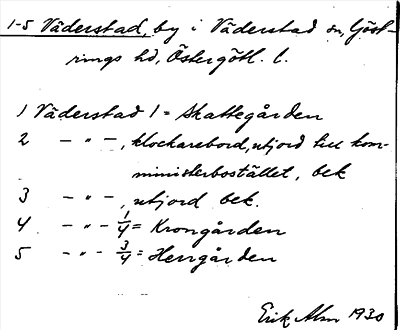 1-5 Väderstad, by i Väderstad sn, Göst-
rings hd, Östergötl. l.
1 Väderstad 1 = Skattegården
2 - " -, klockarebord, utjord till kom-
ministerbostället, bek
3 - " -, utjord bek.
4 - " - 1/4 = Krongården
5 - " - 3/4 = Herrgården
Erik Alm 1930